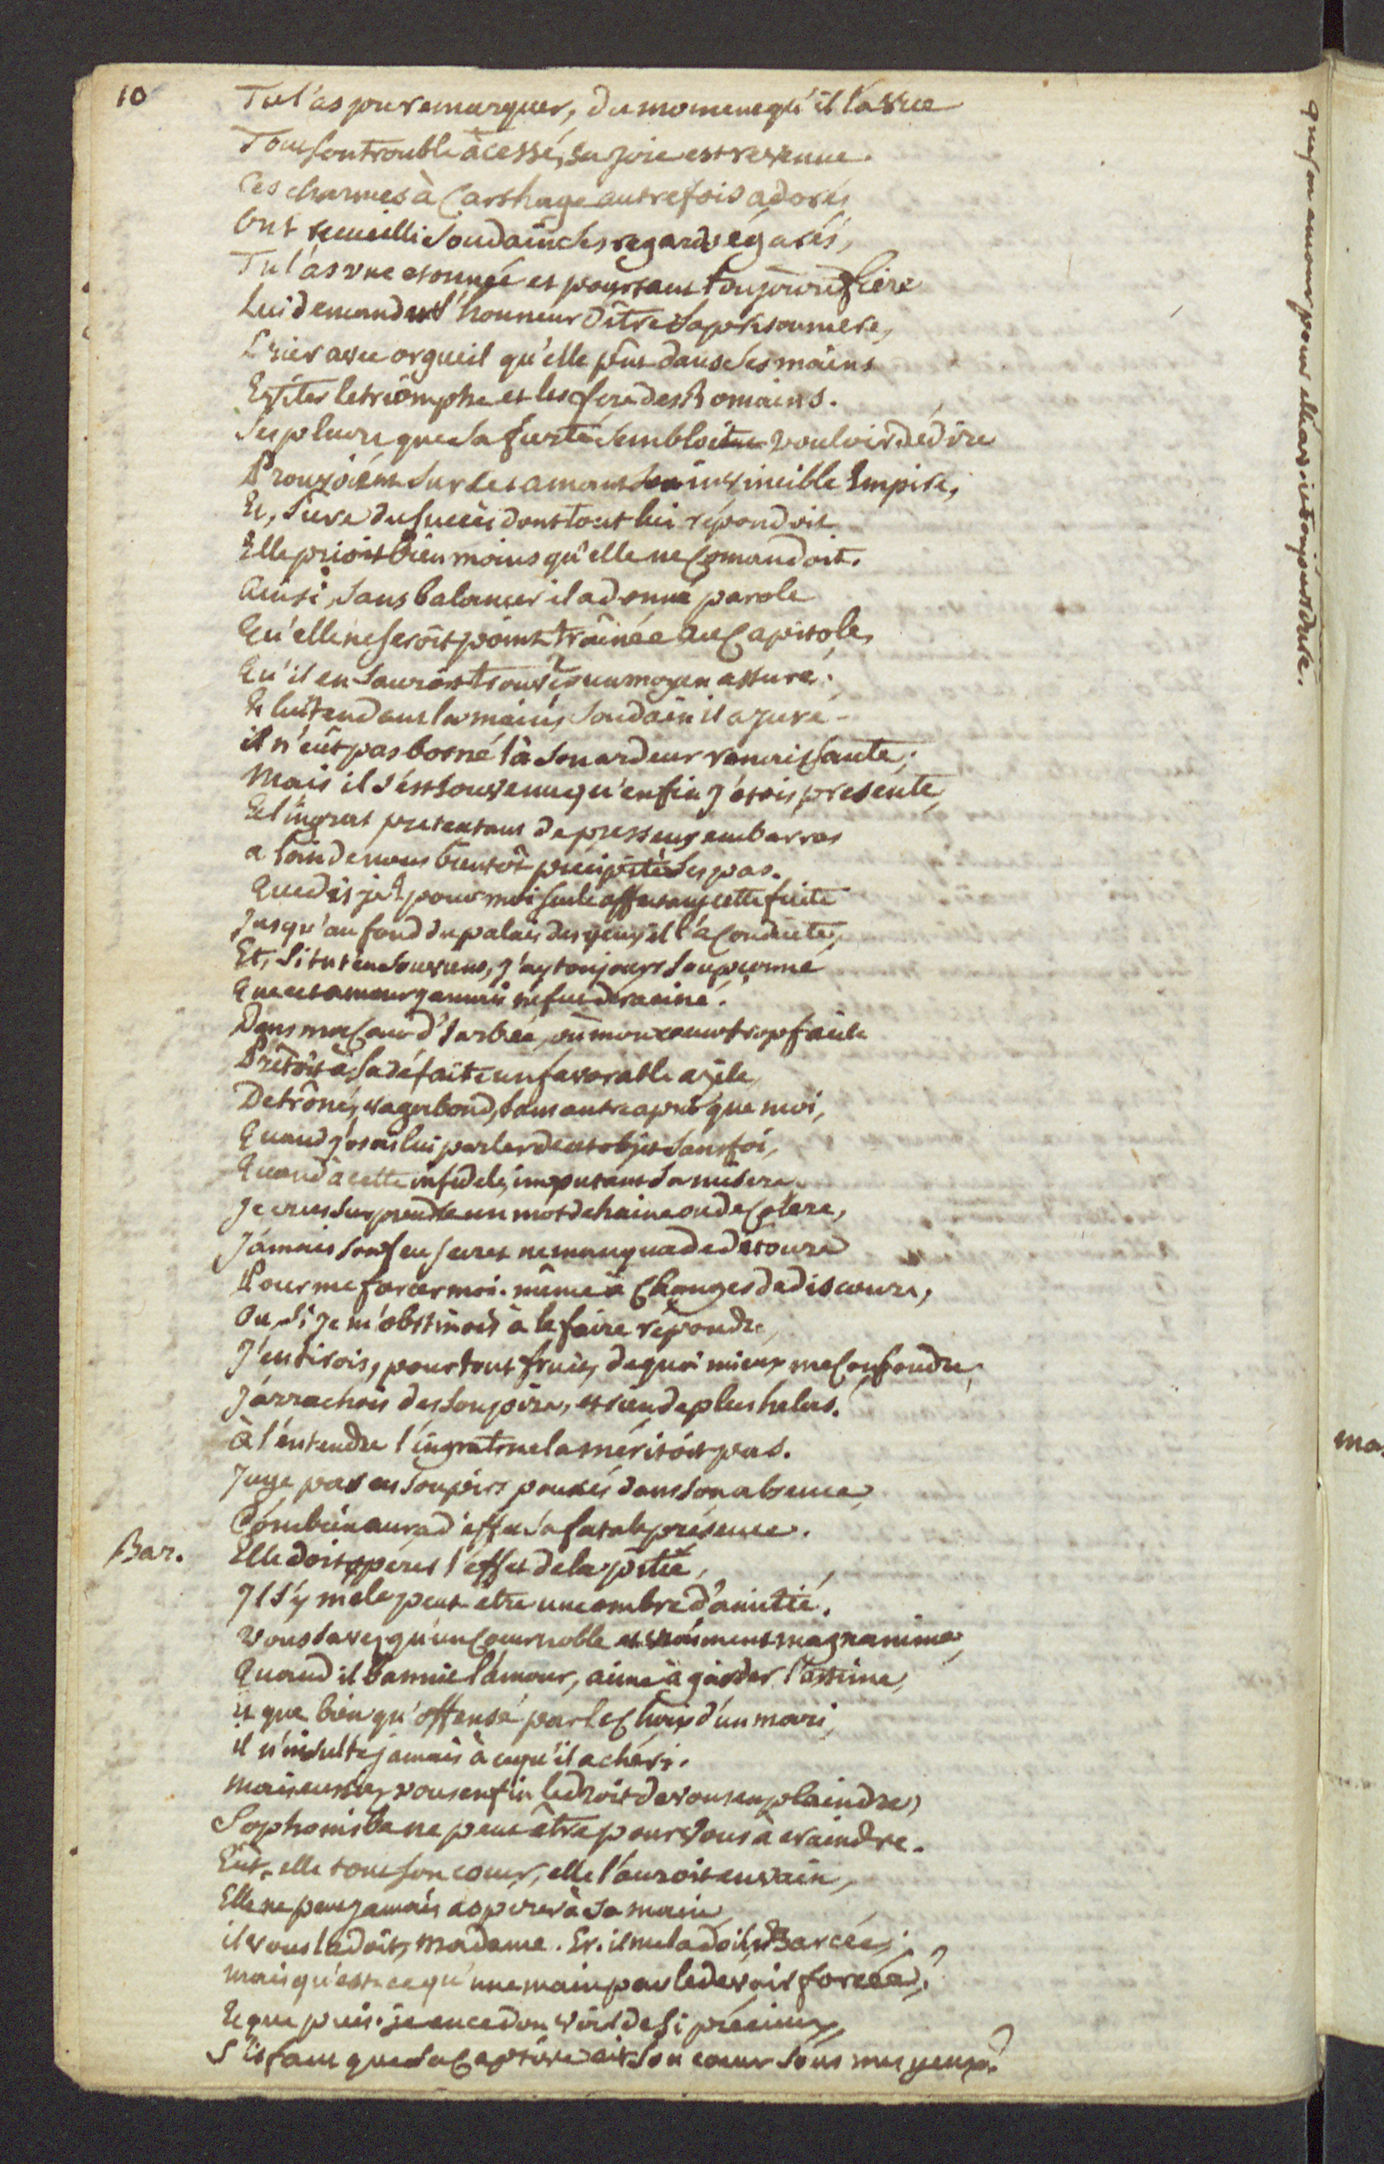 10
Tu l'as pu remarquer, du moment qu'il l'a vue
Tout son trouble à cessé, sa joie est revenue.
Ces charmes à Carthage autrefois adorés
Ont recueilli soudain ses regards égarés,
Tu l'as vue etonnée et pourtant toujours fière
Lui demander l'honneur d'être sa prisonniere,
L'hier avec orgueil qu'elle put dans ses mains
Eviter le triomphe et les fers des Romains.
Ses pleurs que sa fierté sembloit vouloir dédire
Prouvoient sur cet amant son invincible Empire,
Et, sure du succès dont tout lui répondoit
Elle prioit bien moins qu'elle ne Comandoit.
Ainsi, sans balancer il a donné parole
Qu'elle ne seroit point trainée au Capitole,
Qu'il en sauroit trouver un moyen assuré.
Et lui tendant la main, soudain il a juré
il n'eût pas borné là son ardeur renaissante;
Mais il s'est souvenu qu'enfin j'étois presente,
Et l'ingrat pretextant de pressens embarras
a loin de nous bientôt précipité ses pas.
Que dis je? pour moi seule affectant cette fuite
Jusqu'au fond du palais des yeux il l'a Conduite,
Et, si tu t'en souviens, j'ay toujours soupçonné
Que cet amour jamais ne fut deraciné.
Dans ma Cour d'Hesbée, où mon coeur trop facile
Prêtoit à sa défaite un favorable azile,
Detrôné, vagabond, sans autre apui que moi,
Quand j'osois lui parler de cet objet sans foi,
Quand à cette infidele, imputant sa misere,
Je crus surprendre un mot de haine ou de Colere,
Jamais son feu secret ne manqua de détours
Pour me forcer moi-même à Changer de discours,
Ou, si je m'obstinois à le faire répondre,
J'en tirois, pour tout fruit, de quoi mieux me Confondre,
J'arrachois des soupirs, et rien de plus helas!
à l'entendre l'ingrate ne la méritoit pas.
Juge par ces soupirs poussés dans son absence
Combien aura d'effet sa fatale présence.
Bar. Elle doit opérer l'effet de la pitié,
Il s'y mêle peut etre une ombre d'amitié.
Vous savez qu'un Coeur noble et vraiment magnanime,
Quand il bannit l'amour, aime à garder l'estime,
et que bien qu'offensé par le Choix d'un mari
il n'insulte jamais à ce qu'il a chéri.
mais eussiez vous enfin le droit de vous en plaindre,
Sophonisbe ne peut être pour vous à craindre.
Eût-elle tout son coeur, elle l'auroit en vain,
Elle ne peut jamais aspirer à sa main,
il vous la doit, Madame. Er. il me la doit, Barcée;
mais qu'est-ce qu'une main par le devoir forcée?
Et que puis-je en ce don voir de si précieux,
S'il faut que sa Captive ait son coeur sous mes yeux?
que son amour pour elle avoit toujours duré.
ma